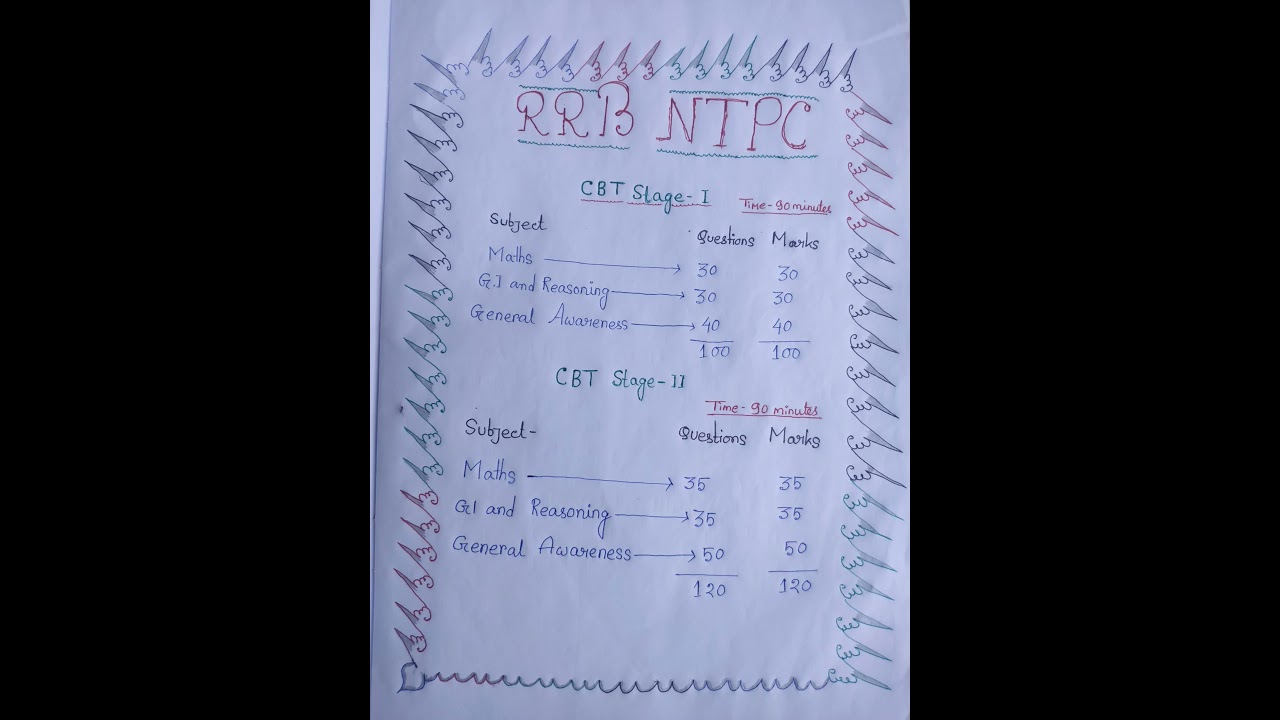 RRB NTPC
CBT Stage-I
Time-90minutes
Subject Questions Marks
Maths 30 30
G.I and Reasoning 30 30
General Awareness 40 40
100 100
CBT Stage-II
Time-90 minutes
Subject- Questions Marks
Maths 35 35
GI and Reasoning 35 35
General Awareness 50 50
120 120